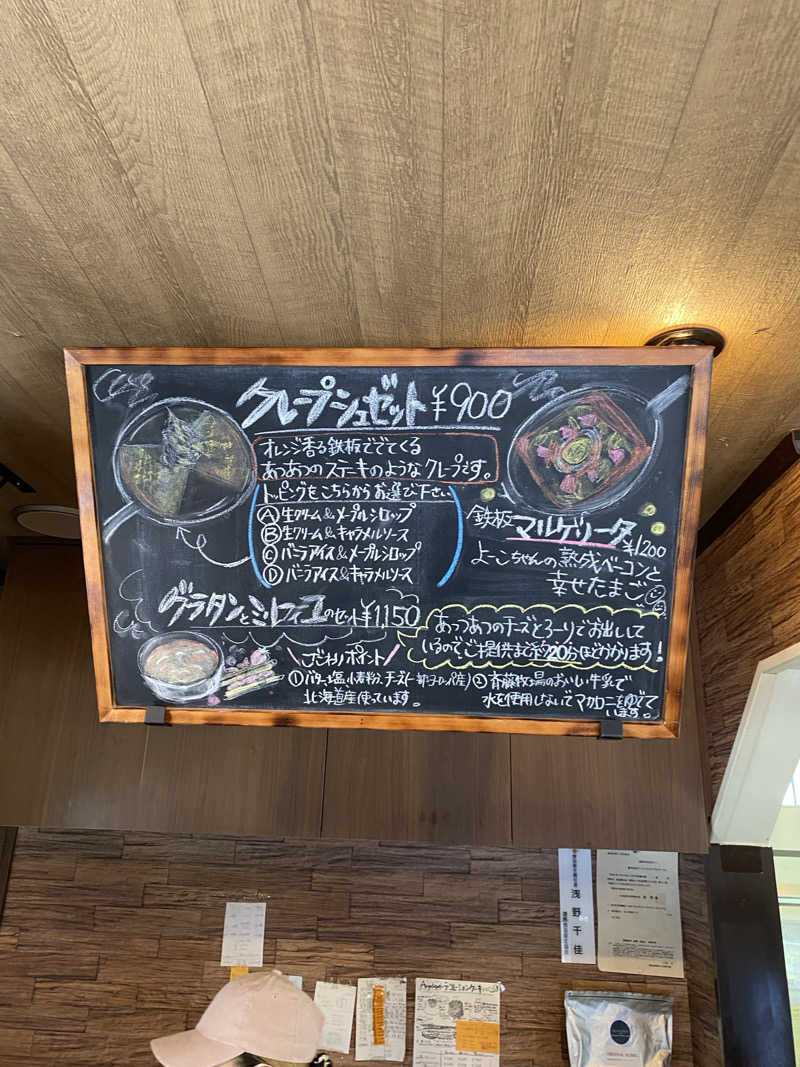 クレープシュゼット ¥900
オレンジ香る鉄板ででてくる
あつあつのステーキのようなクレープです。
トッピングをこちらからお選び下さい
Ⓐ生クリーム&メープルシロップ
Ⓑ生クリーム&キャラメルソース
Ⓒバニラアイス&メープルシロップ
Ⓓバニラアイス&キャラメルソース
鉄板マルゲリータ
¥1200
よーこちゃんの熟成ベーコンと
幸せたまご
グラタンとミルフィユのセット ¥1,150
あっつあつのチーズとろーりでお出しして
いるので、ご提供まで約20分ほどかかります!
こだわりポイント
①バター、塩、小麦粉、チーズ(一部ヨーロッパ産)
北海道産使っています。
②斉藤牧場のおいしい牛乳で
水を使用しないでマカロニをゆでて
います。
浅野千佳